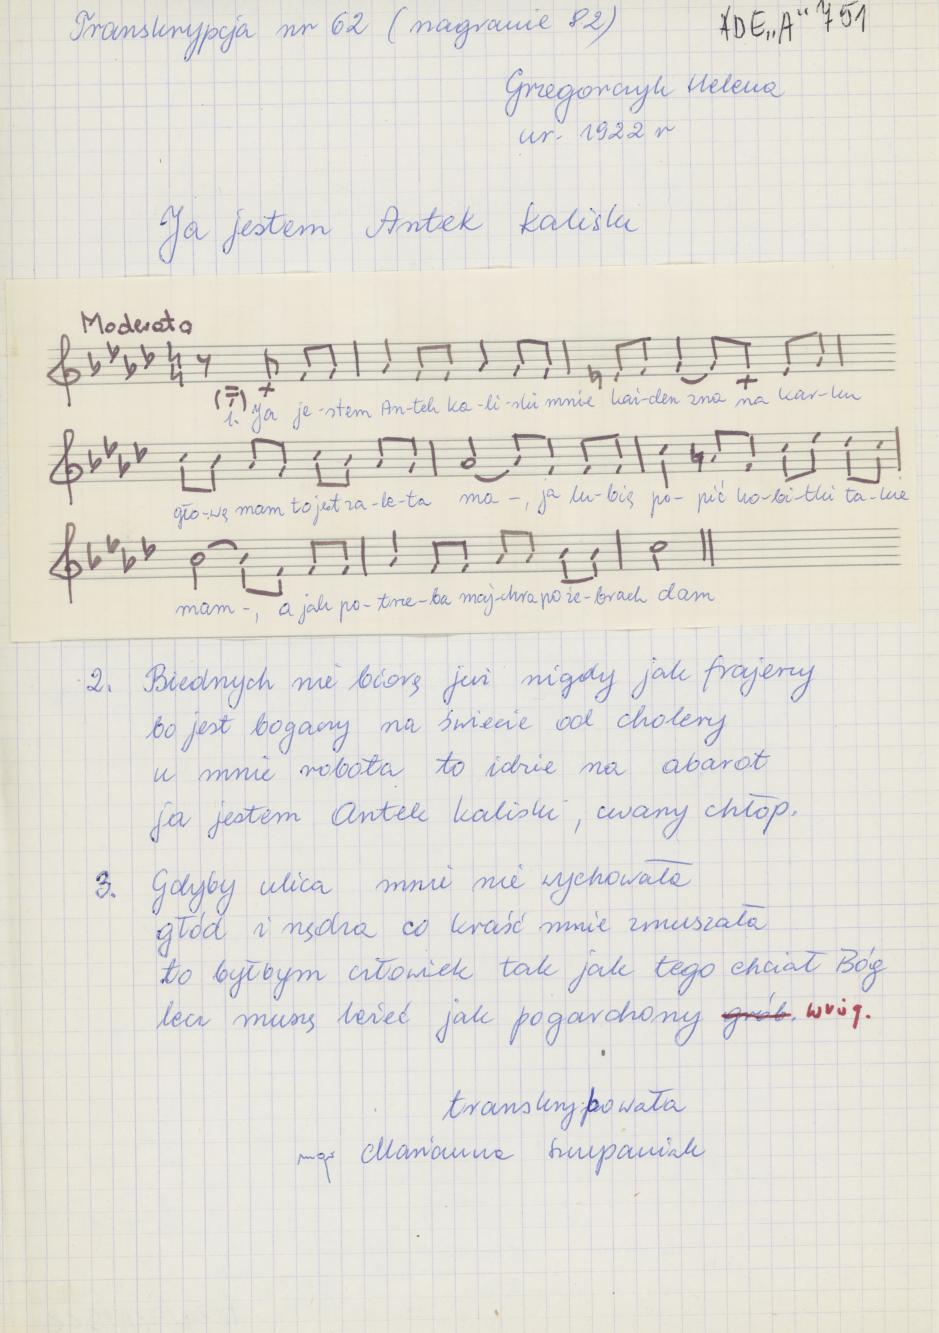 Transkrypcja nr 62 (nagranie 82)
ADE„A" 751
Grzegorczyk Helena
ur. 1922 r
Ja jestem Antek kaliski
Moderato
1. Ja je-stem An-tek ka-li-ski mnie każ-den zna na kar-ku
gło-wę mam to jest za-le-ta ma-, ja lu-bię po-pić ko-bi-tki ta-kie
mam-, a jak po-trze-ba maj-chra po że-brach dam
2. Biednych nie biorę już nigdy jak frajerzy
bo jest bogaczy na świecie od cholery
u mnie robota to idzie na abarot
ja jestem Antek kaliski, cwany chłop.
3. Gdyby ulica mnie nie wychowała
głód i nędza co kraść mnie zmuszała
to byłbym człowiek tak jak tego chciał Bóg
lecz muszę leżeć jak pogardzony grób. wróg.
transkrybowała
mgr Marianna